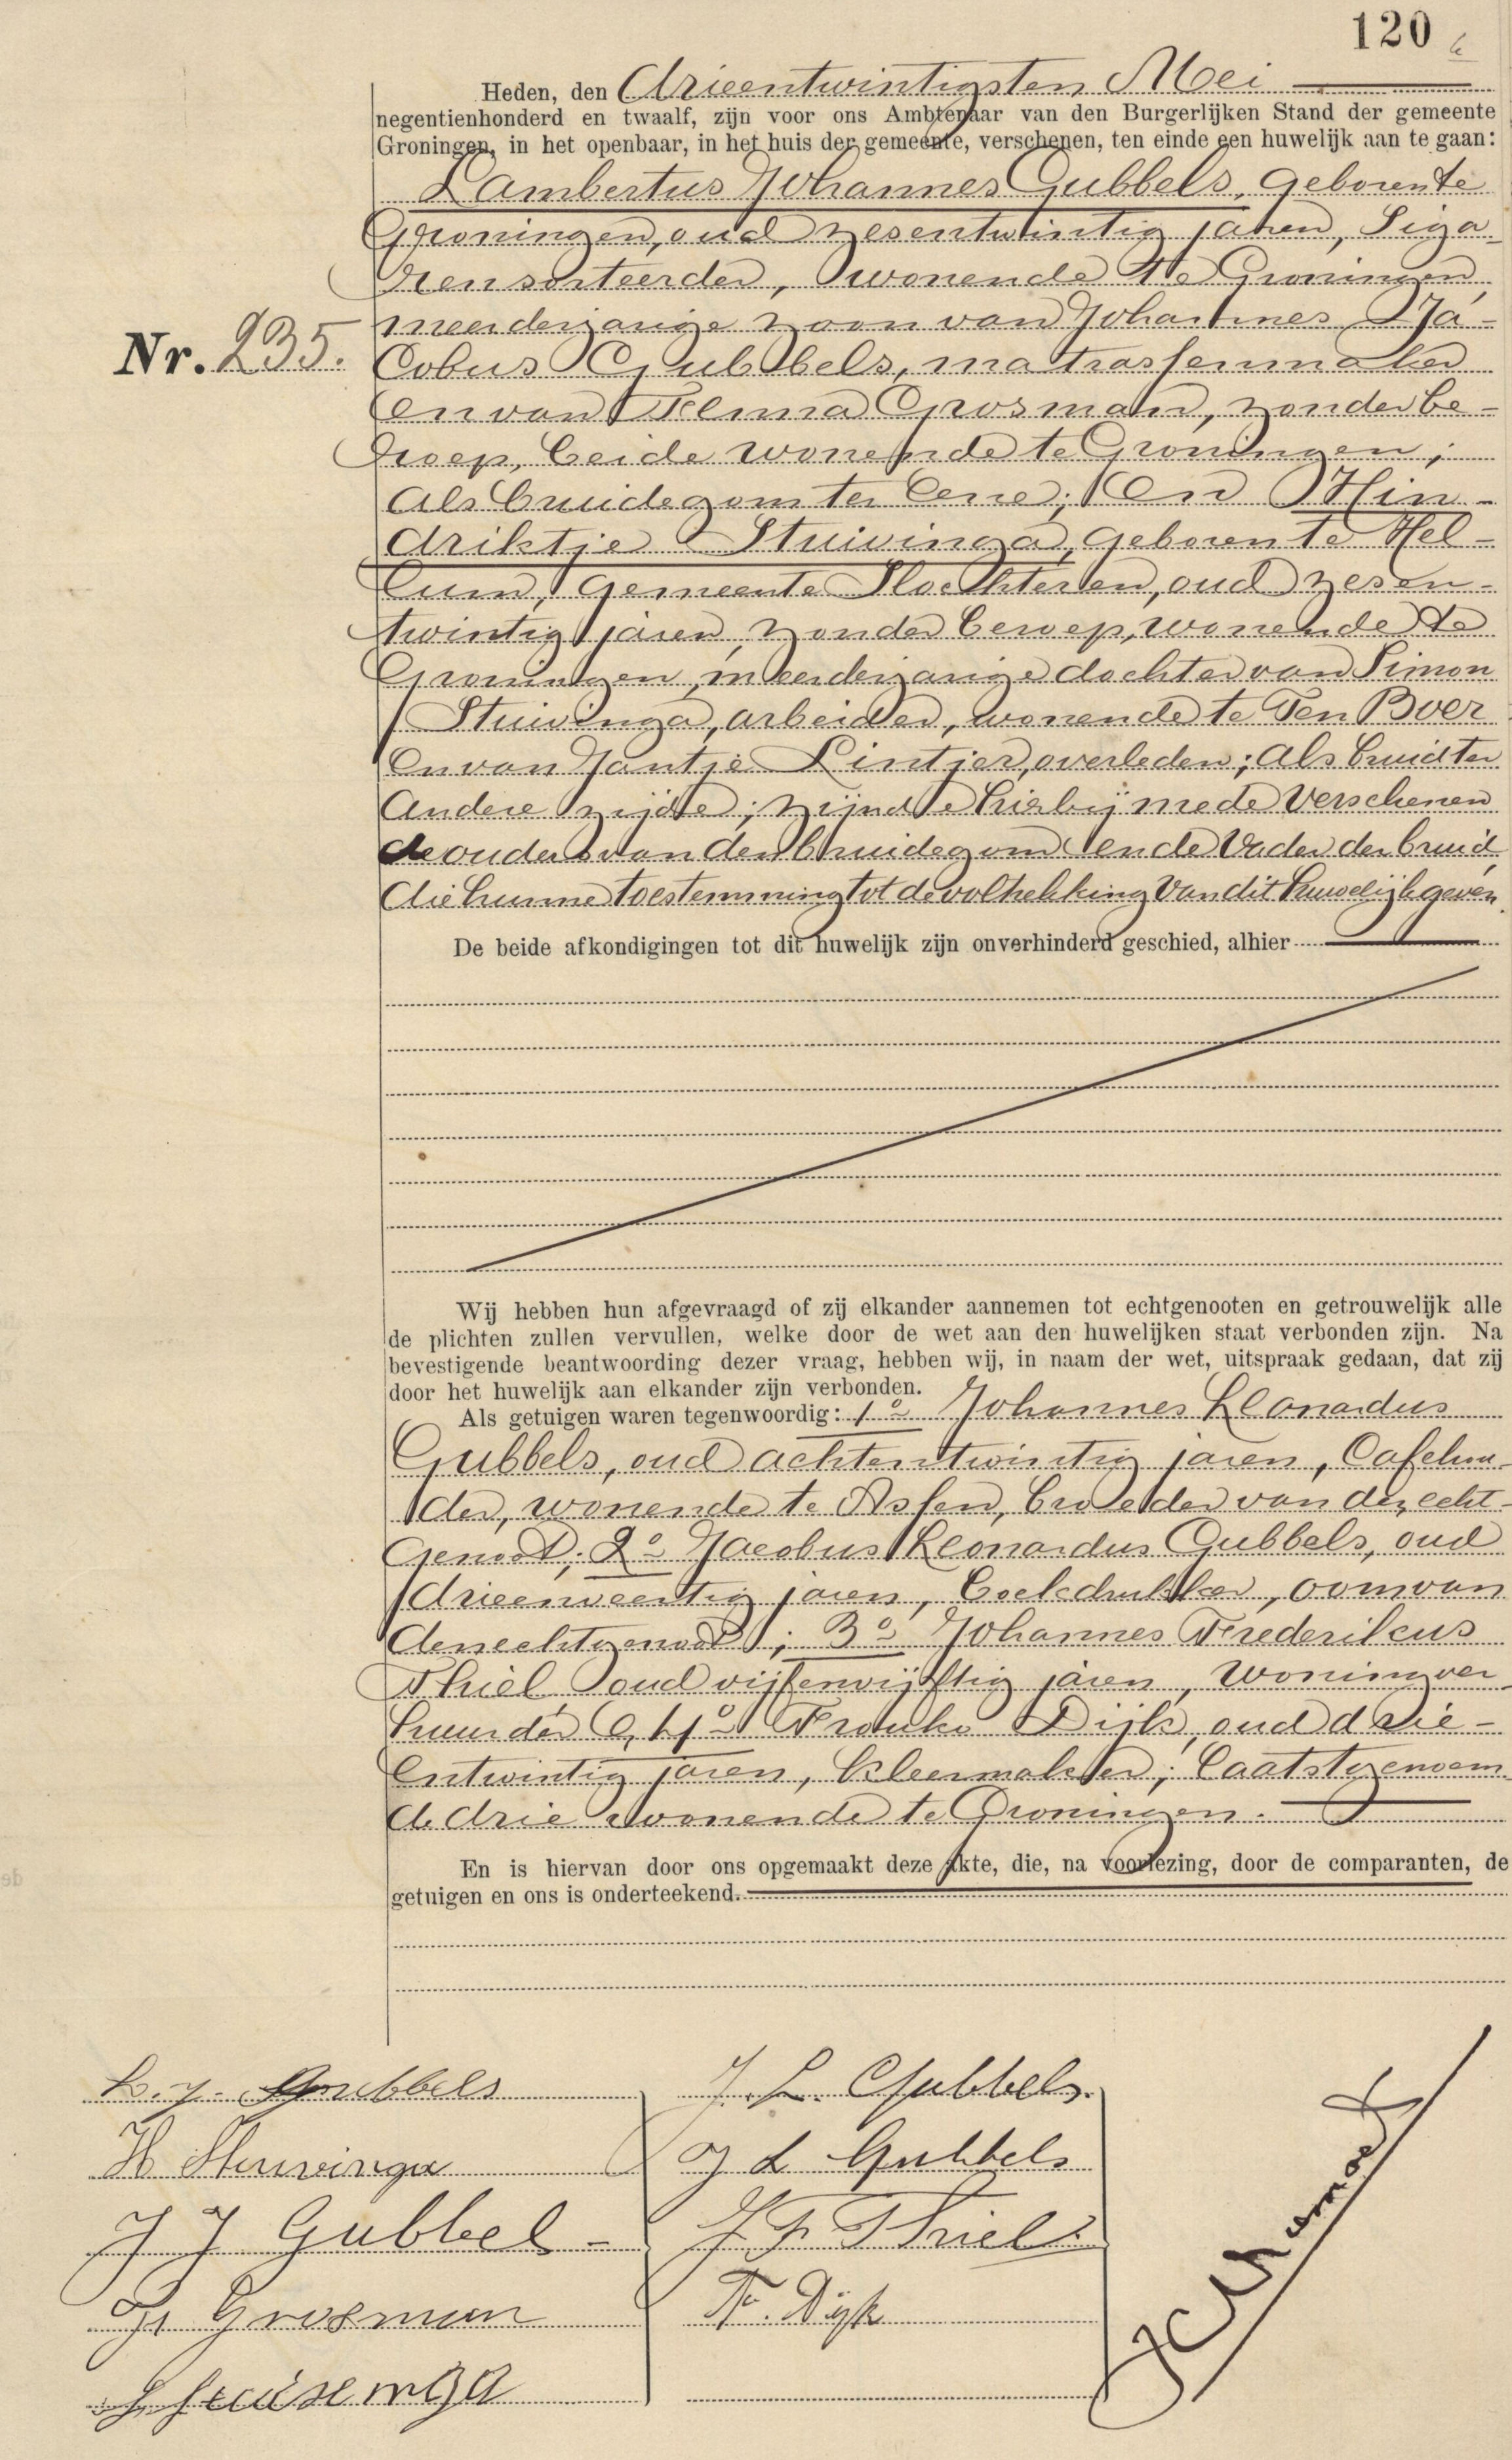 120
Heden, den drieentwintigsten Mei
negentienhonderd en twaalf, zijn voor ons Ambtenaar van den Burgerlijken Stand der gemeente
Groningen, in het openbaar, in het huis der gemeente, verschenen, ten einde een huwelijk aan te gaan:
Lambertus Johannes Gubbels, geboren te
Groningen, oud zesentwintig jaren, Siga-
rensorteerder, wonende te Groningen,
meerderjarige zoon van Johannes Ja-
Nr. 235.
cobus Gubbels, matrassenmaker
en van Grosman, zonder be-
roep, beide wonende te Groningen;
als bruidegom ter eene; en Hin-
driktje Stuivinga, geboren te Hel-
lum, gemeente Slochteren, oud zesen-
twintig jaren, zonder beroep, wonende te
Groningen, meerderjarige dochter van Simon
Stuivinga, arbeider, wonende te Ten Boer
en van Jantje Lintjer, overleden; als bruid ter
andere zijde; zijnde hierbij mede verschenen
de ouders van den bruidegom en de vader der bruid,
die hunne toestemming tot de voltrekking van dit huwelijk geven.
De beide afkondigingen tot dit huwelijk zijn onverhinderd geschied, alhier
Wij hebben hun afgevraagd of zij elkander aannemen tot echtgenooten en getrouwelijk alle
de plichten zullen vervullen, welke door de wet aan den huwelijken staat verbonden zijn. Na
bevestigende beantwoording dezer vraag, hebben wij, in naam der wet, uitspraak gedaan, dat zij
door het huwelijk aan elkander zijn verbonden.
Als getuigen waren tegenwoordig: 1o Johannes Leonardus
Gubbels, oud achtentwintig jaren, Cafehou-
der, wonende te Assen, broeder van den echt-
genoot; 2o Jacobus Leonardus Gubbels, oud
drieenveertig jaren, boekdrukker, oom van
den echtgenoot; 3o Johannes Frederikus
Thiel, oud vijfenvijftig jaren, woningver-
huurder & 4o Frouko Dijk, oud drie-
entwintig jaren, kleermaker; laatstgenoem-
de drie wonende te Groningen.
En is hiervan door ons opgemaakt deze akte, die, na voorlezing, door de comparanten, de
getuigen en ons is onderteekend.
L. J. Gubbels
J. L. Gubbels.
H Stuivinga
J L Gubbels
J J Gubbels
J F Thiel
Grosman
F. Dijk